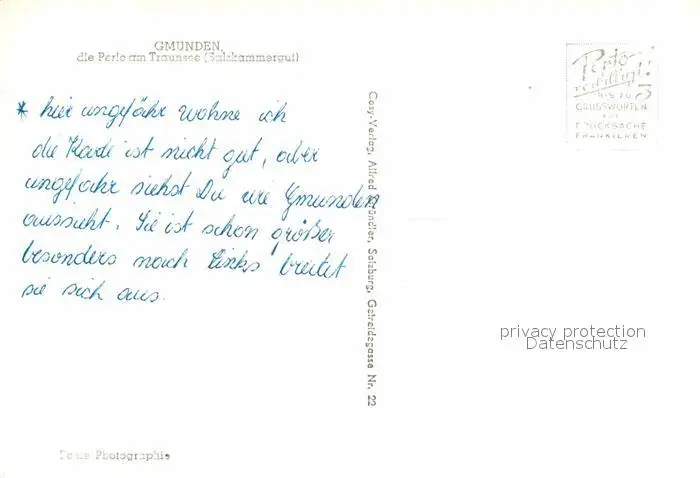 GMUNDEN,
die Perle am Traunsee (Salzkammergut)
* hier ungefähr wohne ich
die Karte ist nicht gut, aber
ungefähr siehst Du wie Gmunden
aussieht. Sie ist schon größer
besonders nach links breitet
sie sich aus.
Cosy-Verlag, Alfred Gründler, Salzburg, Getreidegasse Nr. 22
Porto
verbilligt!
BIS ZU 5
GRUSSWORTEN
ALS
DRUCKSACHE
FRANKIEREN
privacy protection
Datenschutz
Photographie